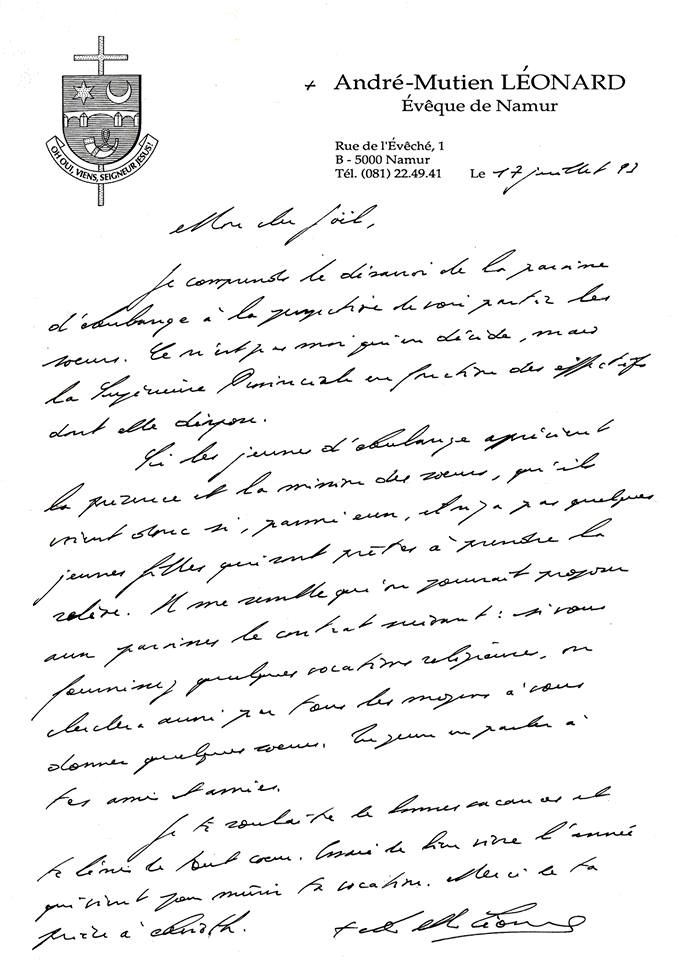 OH OUI, VIENS, SEIGNEUR JÉSUS!
+ André-Mutien LÉONARD
Évêque de Namur
Rue de l'Évêché, 1
B - 5000 Namur
Tél. (081) 22.49.41
Le 17 juillet 93
Mon cher Joël,
Je comprends le désarroi de la paroisse
d'Aubange à la perspective de voir partir les
soeurs. Ce n'est pas moi qui en décide, mais
la Supérieure Provinciale en fonction des effectifs
dont elle dispose.
Si les jeunes d'Aubange apprécient
la présence et la mission des soeurs, qu'ils
voient donc si, parmi eux, il n'y a pas quelques
jeunes filles qui sont prêtes à prendre la
relève. Il me semble qu'on pourrait proposer
aux paroisses le contrat suivant : si vous
fournissez quelques vocations religieuses, on
cherchera aussi par tous les moyens à vous
donner quelques soeurs. Tu peux en parler à
tes amis et amies.
Je te souhaite de bonnes vacances et
te bénis de tout coeur. Essaie de bien vivre l'année
qui vient pour mûrir ta vocation. Merci de ta
prière à
+ Léonard